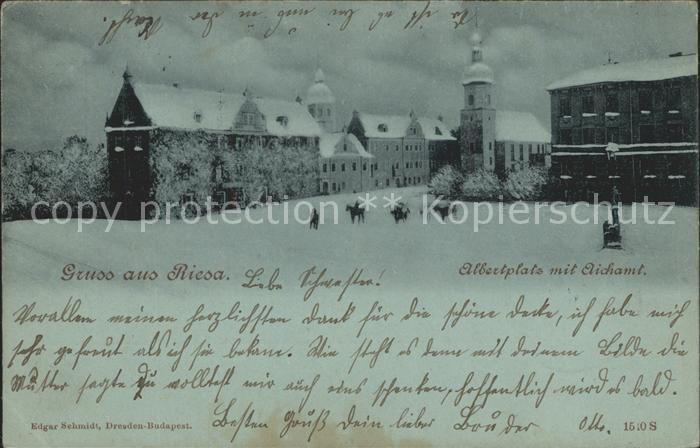 copy protection · Kopierschutz
Gruss aus Riesa.
Albertplatz mit Aichamt.
Liebe Schwester!
Vorallem meinen herzlichsten Dank für die schöne Decke, ich habe mich
sehr gefreut als ich sie bekam. Wie steht es denn mit deinem Bilde die
Mutter sagte Du wolltest mir auch eins schenken, hoffentlich wird es bald.
Besten Gruß Dein lieber Bruder Otto.
Edgar Schmidt, Dresden-Budapest.
1510 S